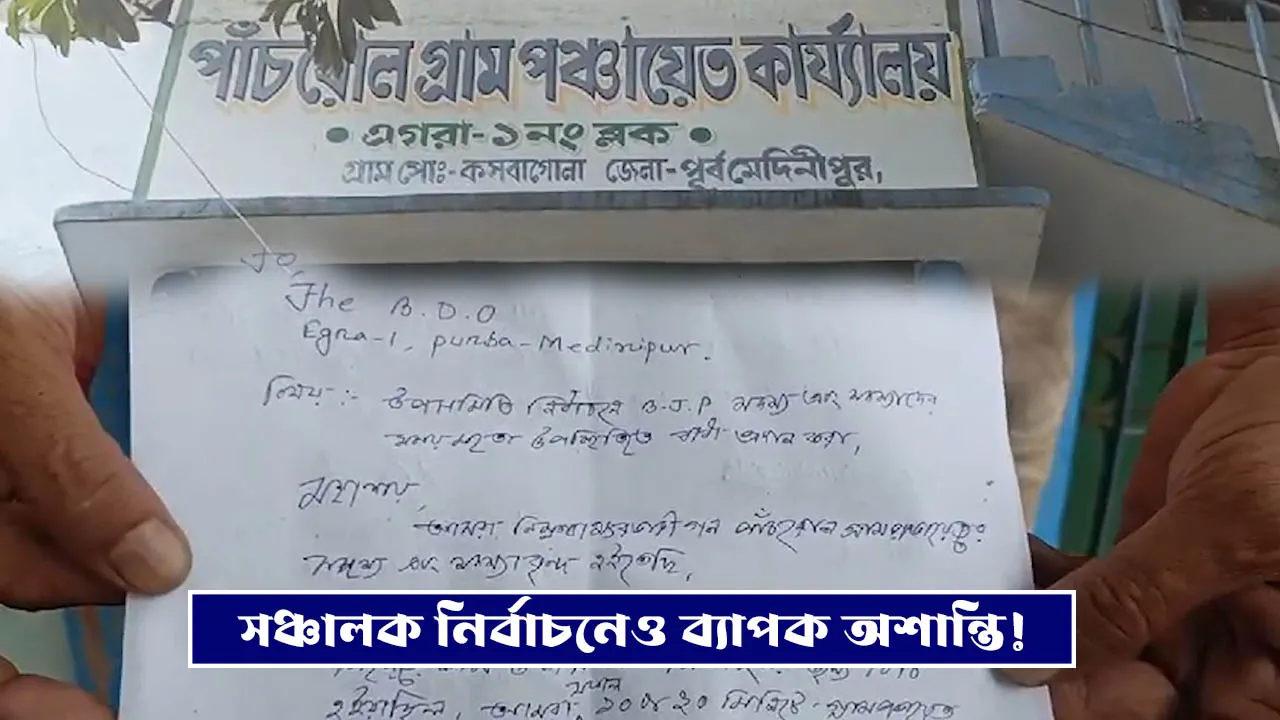 পাঁচরোল গ্রাম পঞ্চায়েত কার্য্যালয়
• এগরা-১নং ব্লক •
গ্রাম পোঃ-কসবাগোলা জেলা-পূর্বমেদিনীপুর,
To,
The B.D.O
Egra-1, Purba-Medinipur.
বিষয়:- উপসমিতি নির্বাচনে B.J.P সদস্য এবং সদস্যাদের
উপস্থিতিতে বাধা প্রদান করা,
মহাশয়,
আমরা নিম্নস্বাক্ষরকারী গন পাঁচরোল গ্রামপঞ্চায়েতের
সদস্য এবং সদস্যাবৃন্দ হইতেছি,
সঞ্চালক নির্বাচনেও ব্যাপক অশান্তি!
সকাল
হইয়াছিল, আমরা ১০টা ২০ মিনিটে গ্রামপঞ্চায়েত